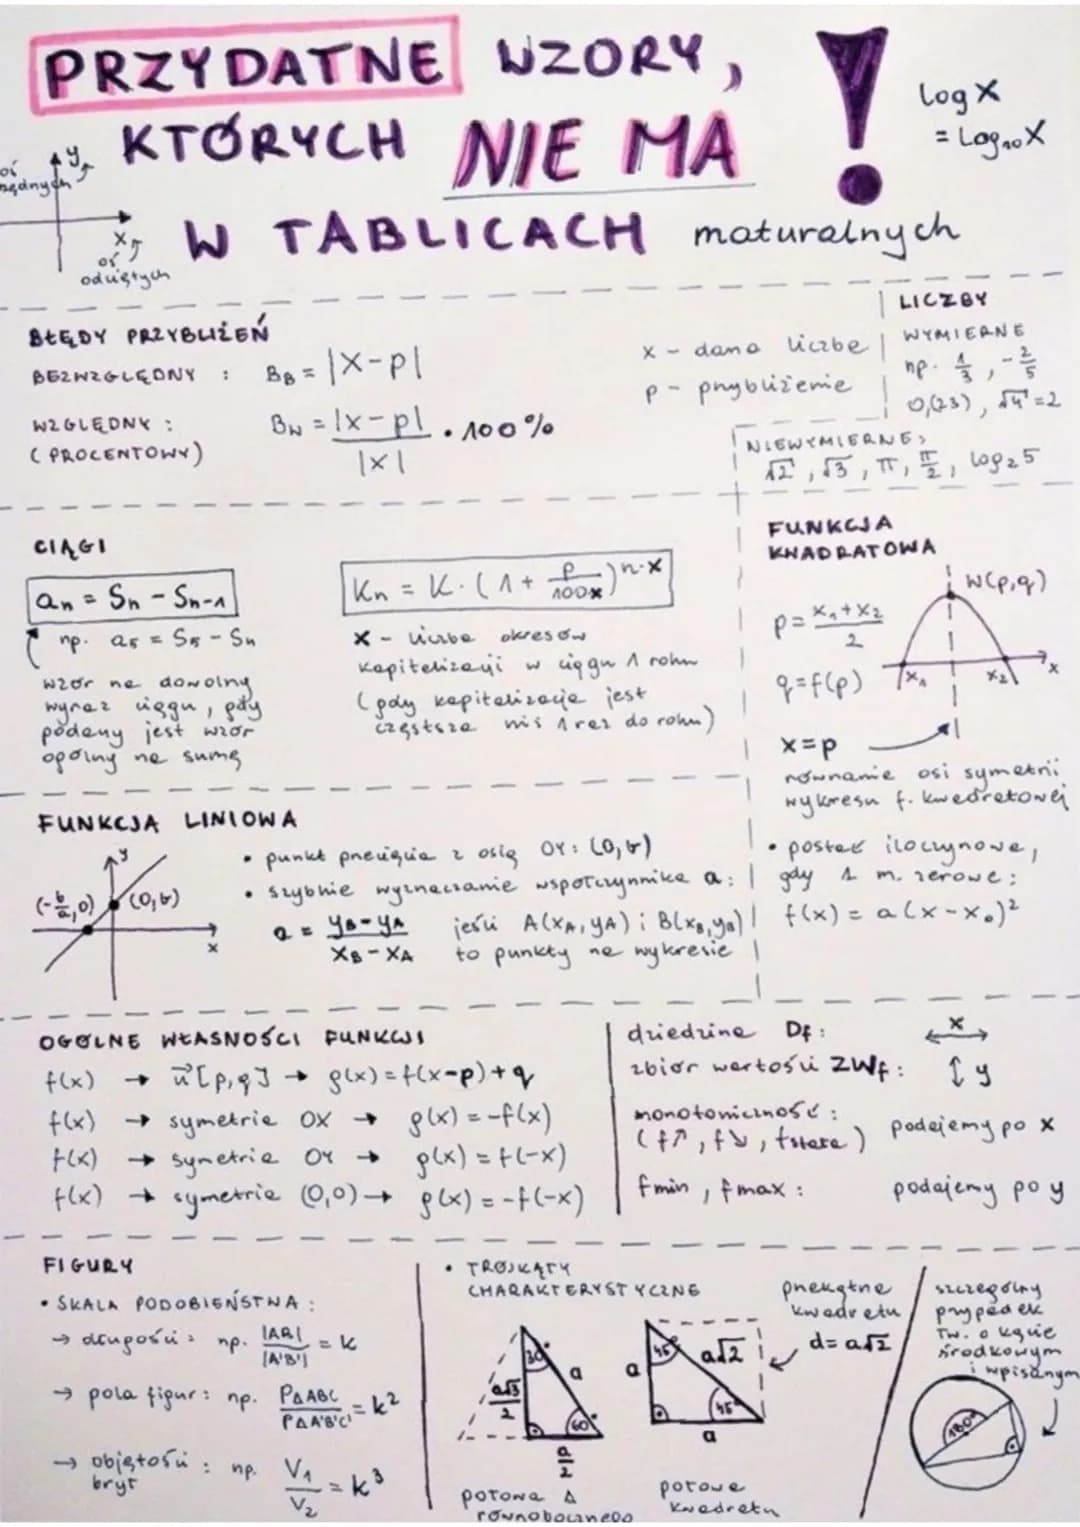 PRZYDATNE WZORY,
KTÓRYCH NIE MA !
W TABLICACH maturalnych
log x
= log₁₀x
y
oś
x
oś
odciętych
BŁĘDY PRZYBLIŻEŃ
BEZWZGLĘDNY : B_B = |x-p|
WZGLĘDNY : B_W = |x-p| / |x| · 100%
(PROCENTOWY)
x - dana liczba
p - przybliżenie
LICZBY
WYMIERNE
np. 1/3, -2/5
0,(23), √4=2
NIEWYMIERNE:
√2, √3, π, π/2, log₂5
CIĄGI
aₙ = Sₙ - Sₙ₋₁
np. a₅ = S₅ - S₄
wzór na dowolny
wyraz ciągu, gdy
podany jest wzór
ogólny na sumę
Kₙ = K · (1 + p/100x)^(n·x)
x - liczba okresów
kapitalizacji w ciągu 1 roku
(gdy kapitalizacja jest
częstsza niż 1 raz do roku)
FUNKCJA
KWADRATOWA
W(p,q)
p = (x₁+x₂)/2
q=f(p)
x₁ x₂ x
x=p
równanie osi symetrii
wykresu f. kwadratowej
• postać iloczynowa,
gdy 1 m. zerowe:
f(x) = a(x-x₀)²
FUNKCJA LINIOWA
y
(-b/a,0) (0,b)
x
• punkt przecięcia z osią OY: (0,b)
• szybkie wyznaczanie współczynnika a:
a = (y_B-y_A)/(x_B-x_A) jeśli A(x_A,y_A) i B(x_B,y_B)
to punkty na wykresie
OGÓLNE WŁASNOŚCI FUNKCJI
f(x) → u⃗[p,q] → g(x)=f(x-p)+q
f(x) → symetria OX → g(x)=-f(x)
f(x) → symetria OY → g(x)=f(-x)
f(x) → symetria (0,0) → g(x)=-f(-x)
dziedzina Df: x ↔
zbiór wartości ZWf: ↕ y
monotoniczność:
(f↗, f↘, fstała) podajemy po x
fmin, fmax: podajemy po y
FIGURY
• SKALA PODOBIEŃSTWA:
→ długości: np. |AB|/|A'B'| = k
→ pola figur: np. P△ABC/P△A'B'C' = k²
→ objętości: np. V₁/V₂ = k³
brył
• TRÓJKĄTY
CHARAKTERYSTYCZNE
30° a
a√3/2
60°
a/2
połowa △
równobocznego
45° a√2
a
45°
a
połowa
kwadratu
przekątna
kwadratu
d=a√2
szczególny
przypadek
tw. o kącie
środkowym
i wpisanym
180°